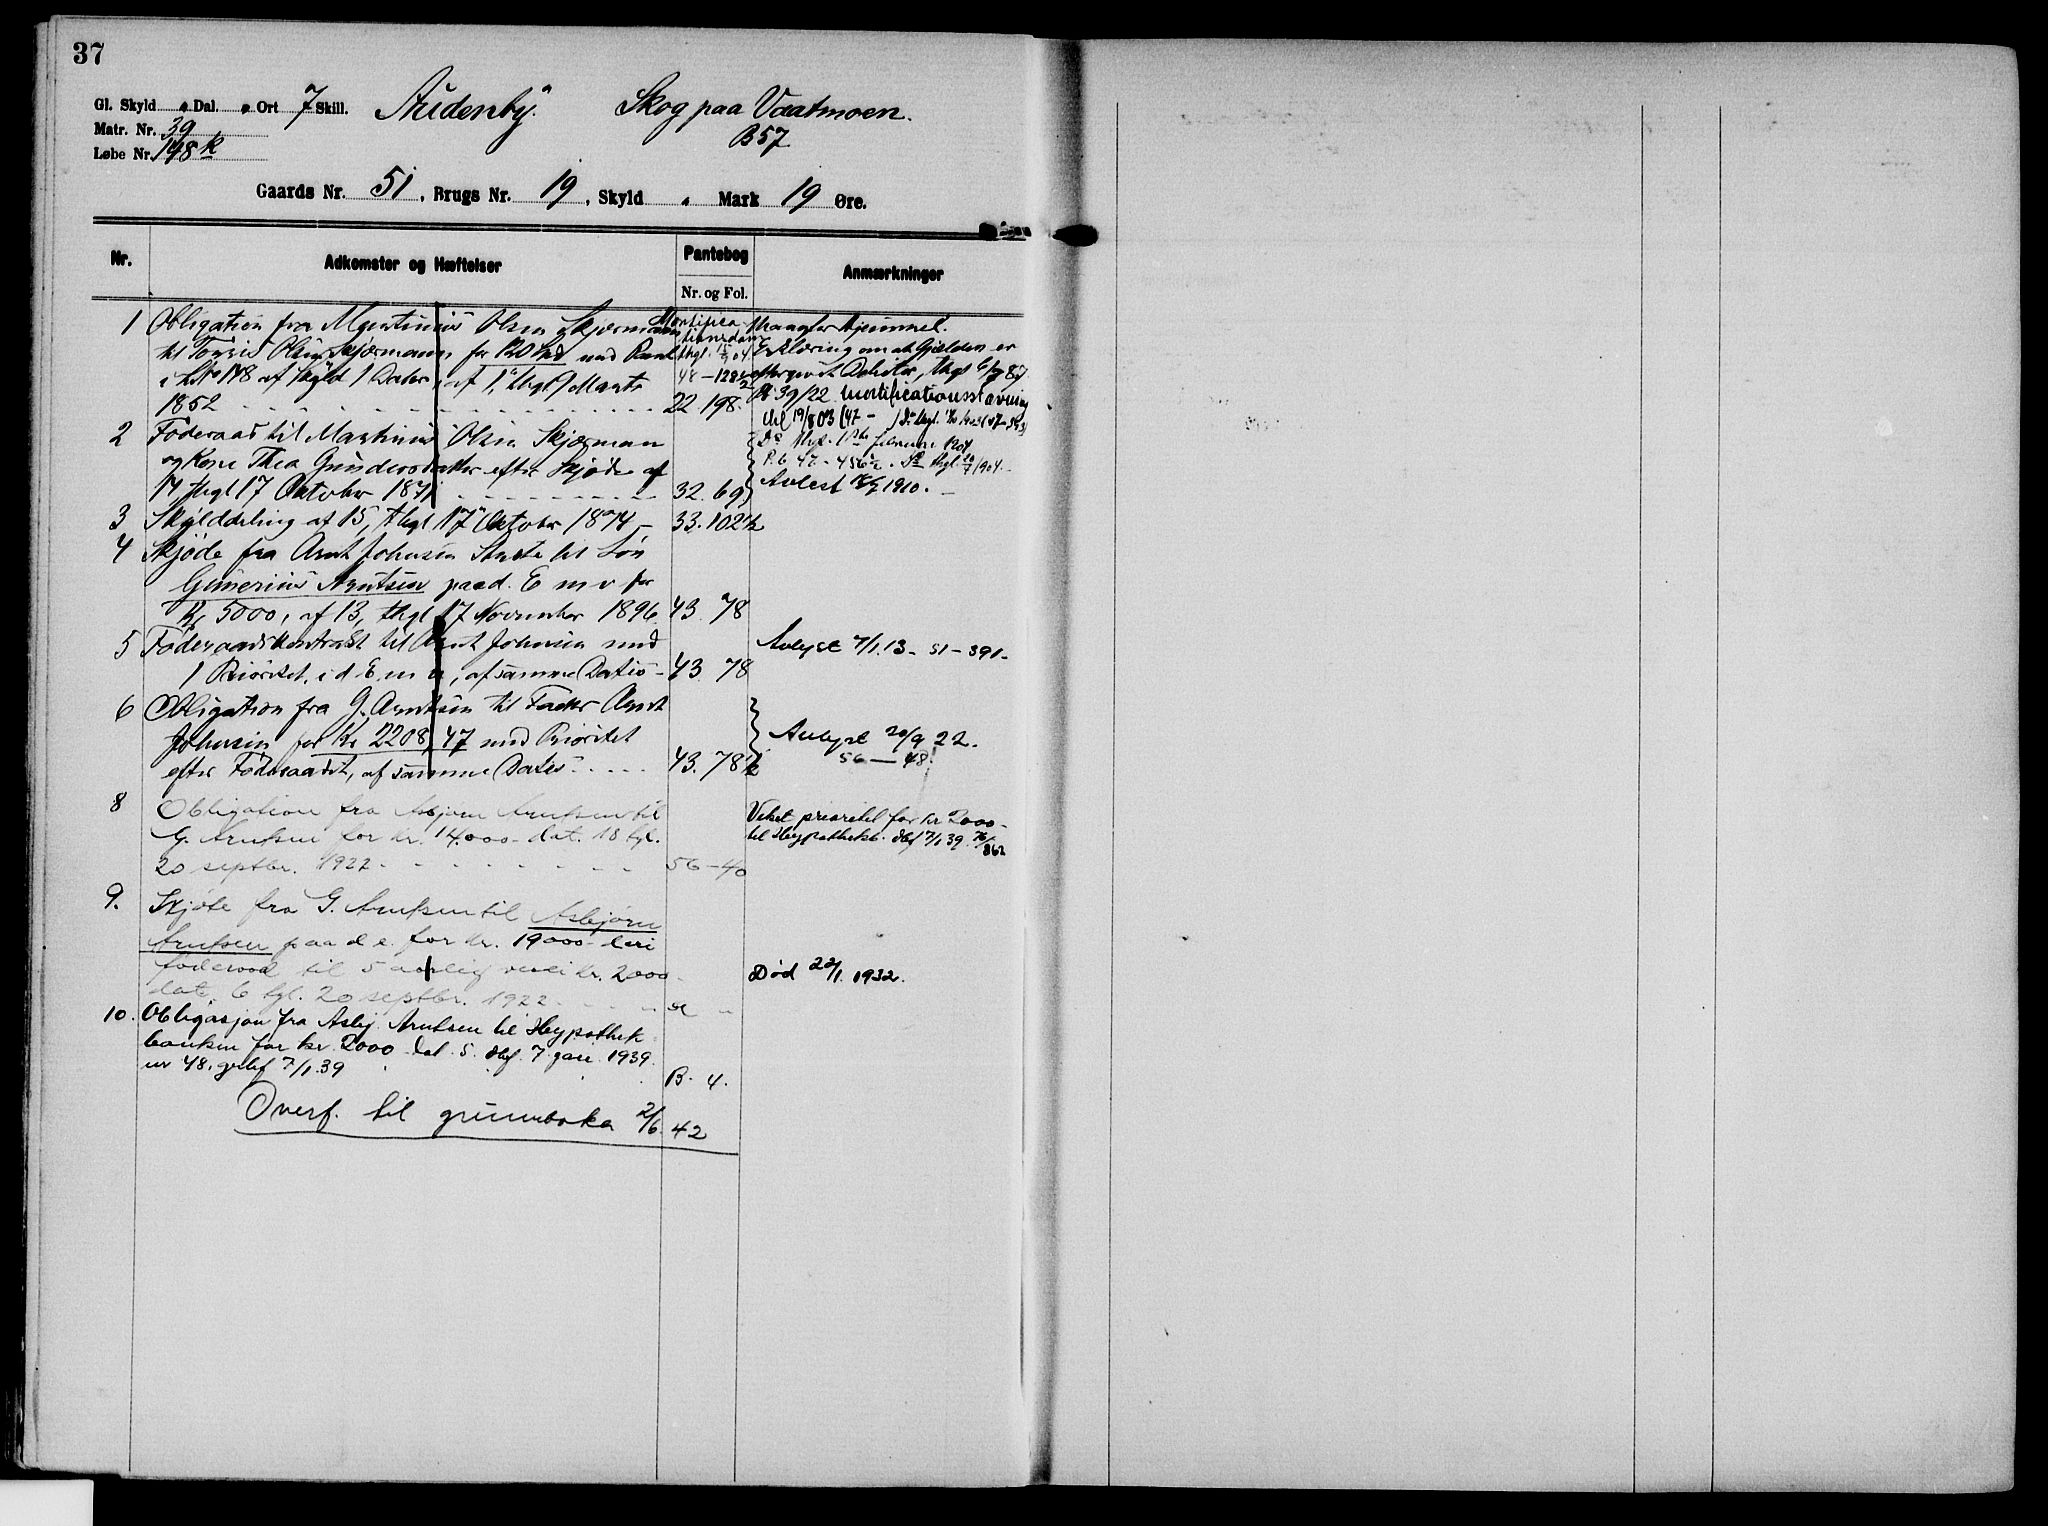 37
Gl. Skyld " Dal. " Ort 7 Skill. Audenby. Skog paa Vaatmoen.
Matr. Nr. 39 B 57
Løbe Nr. 148 k
Gaards Nr. 51, Brugs Nr. 19, Skyld " Mark 19 Øre.
Nr. Adkomster og Hæftelser Pantebog Anmærkninger
Nr. og Fol.
1 Obligation fra Martinius Olsen Skjerman
til Olsen Skjermann for 120 Spd med Pant
i L No 148 af Skyld 1 Daler, af 1, thgl 9 Marts
1852 22. 198.
Mortifica-
tionsdom
thgl. 15/9 04
48 — 128 1/2
Mangler Hjemmel.
Erklæring om at Gjælden er
eftergivet Debitor, thgl 6/7 87
Pb 39/22. Mortificationsstævning
Do thgl. februar 1904
P. b. 47 - 456 1/2. Do thgl. 20/7 1904.
2 Føderaad til Martinius Olsen Skjerman
og Kone Thea Gundersdatter efter Skjøde af
14 thgl 17 Oktober 1871 32. 69
Avlest 1910. —
3 Skylddeling af 15, thgl 17 Oktober 1874 — 33. 102 1/2
4 Skjøde fra Arnt Johnsen til Søn
Gunerius Arntsen paa d. E m v for
Kr 5000, af 13, thgl 17 November 1896 43. 78
5 Føderaadskontrakt til Arnt Johnsen med
1 Prioritet, i d E m v, af samme Datis - 43. 78
Avlyst 7/1.13 - 51 - 391 -
6 Obligation fra G. Arntsen til Fader Arnt
Johnsen for Kr 2208,47 med Prioritet
efter Føderaadet, af samme Dates 43. 78 1/2
Avlyst 20/9 22.
56 — 48
8 Obligation fra Asbjørn Arntsen til
G. Arntsen for kr. 14.000 - dat. 18 tgl.
20 septbr. 1922 - 56 - 40
Veket prioritet for kr 2000 -
til Hypothekb. dbf 7/1 39. 76/862
9. Skjøte fra G. Arntsen til Asbjørn
Arntsen paa d e. for kr. 19000 - deri
føderaad til 5 aarlig verdi kr. 2000 -
dat. 6 tgl. 20 septbr. 1922
Død 22/1. 1932.
10. Obligasjon fra Asbj. Arntsen til Hypothek
banken for kr. 2000 dat. 5. dbf. 7. jan. 1939.
nr 48. 7/1.39 B. 4.
Overf. til grunnboka 2/6 42